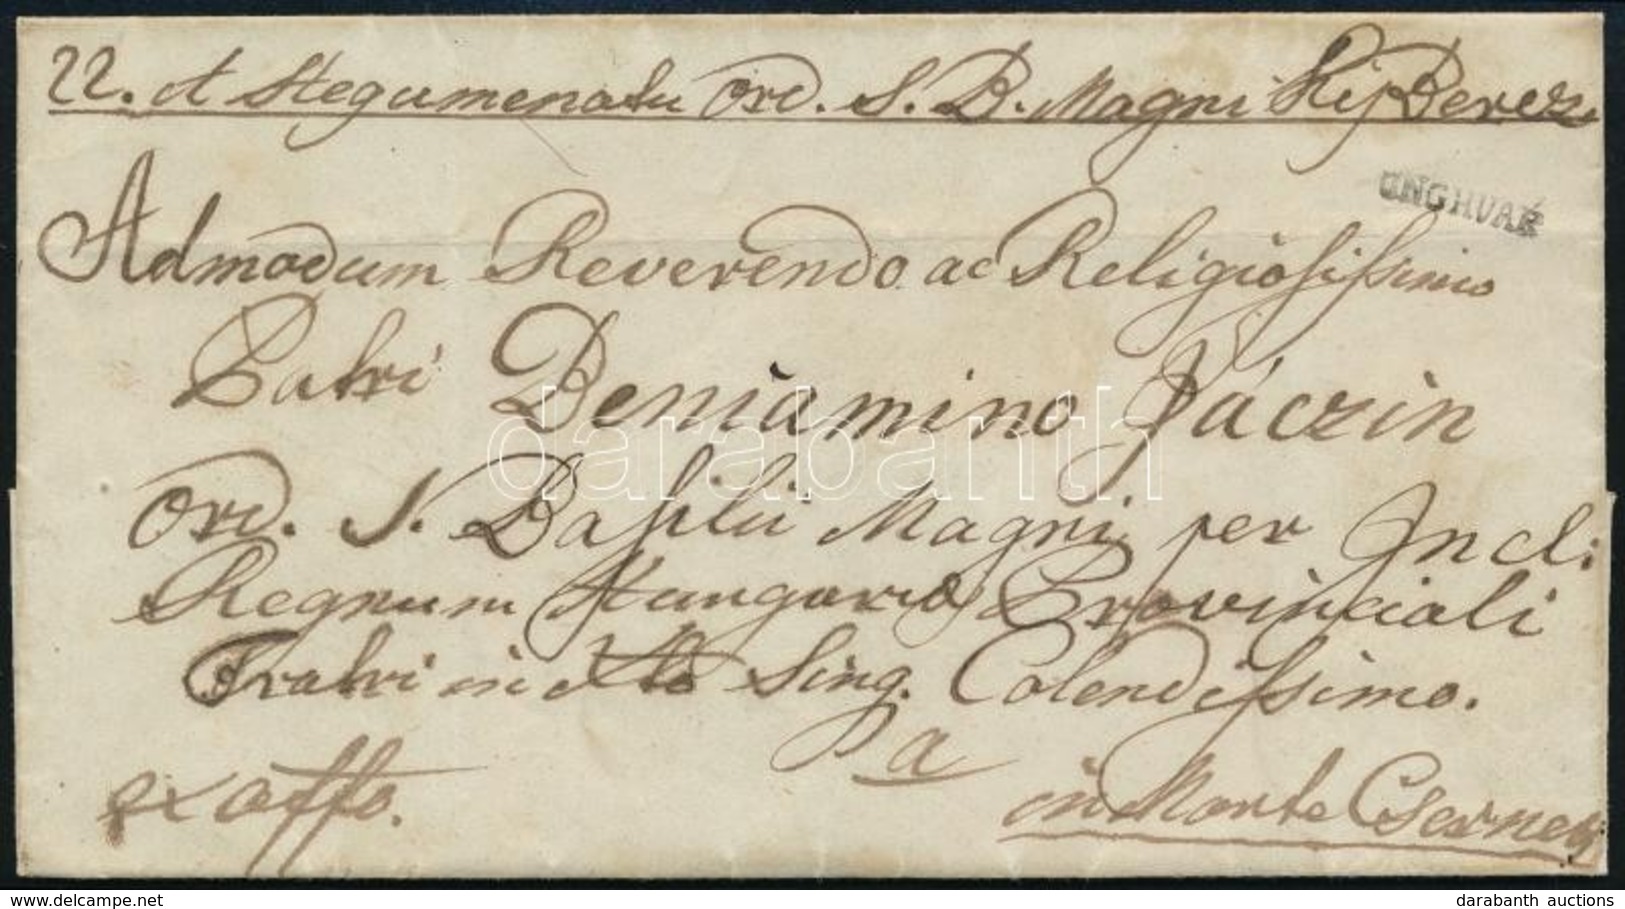 22. A Hegumenatu Ord. S. B. Magni Kis Berez
UNGHVÁR
Admodum Reverendo ac Religiosissimo
Patri Beniamino Páczin
Ord. S. Basilii Magni per Incl:
Regnum Hungariae Provinciali
Fratri in Xto Sing. Colendissimo.
a
in Monte Csernek
ex offo.
darabanth
www.delcampe.net
darabanth auctions